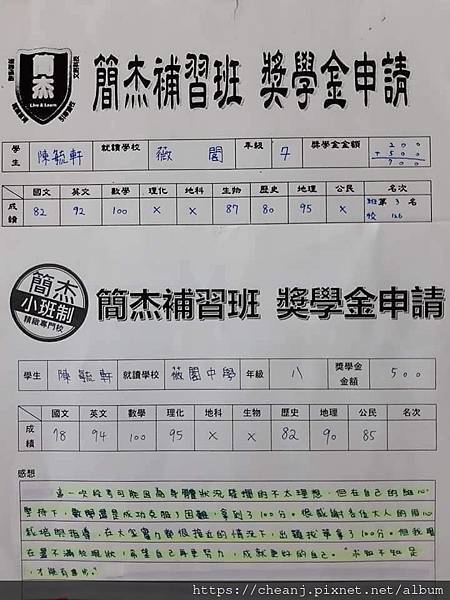 簡杰
Live & Learn
簡杰補習班 獎學金申請
學生 陳毓軒 就讀學校 薇閣 年級 7 獎學金金額 200 + 500 700
國文 英文 數學 理化 地科 生物 歷史 地理 公民 名次
成績 82 92 100 X X 87 80 95 X 班第3名
校 126
簡杰
小班制
精緻專門校
簡杰補習班 獎學金申請
學生 陳毓軒 就讀學校 薇閣中學 年級 八 獎學金金額 500
國文 英文 數學 理化 地科 生物 歷史 地理 公民 名次
成績 78 94 100 95 X X 82 90 85
感想
第一次段考可能因為身體狀況發揮的不太理想,但在自己的細心
堅持下,數學還是成功克服了困難,拿到了100分。很感謝各位大人的用心
栽培與指導,在大家實力都很接近的情況下,出類拔萃拿了100分。但我現
在還不滿於現狀,希望自己再更努力,成就更好的自己。
https://cheanj.pixnet.net/album